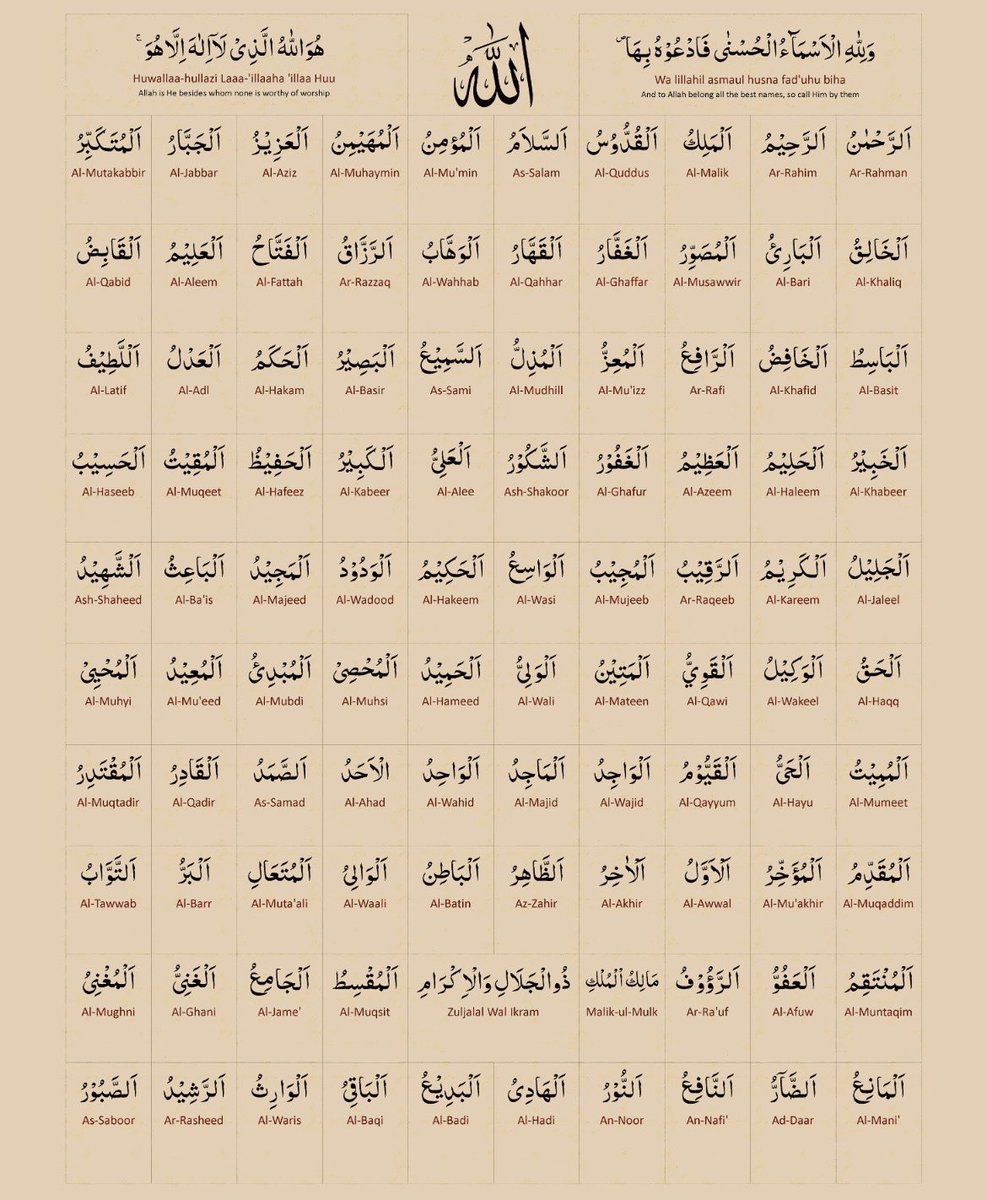 وَلِلّٰهِ الْاَسْمَآءُ الْحُسْنٰى فَادْعُوْهُ بِهَا ۖ
Wa lillahil asmaul husna fad'uhu biha
And to Allah belong all the best names, so call Him by them
اللّٰه
هُوَ اللّٰهُ الَّذِيْ لَآ اِلٰهَ اِلَّا هُوَ ۚ
Huwallaa-hullazi Laaa-'illaaha 'illaa Huu
Allah is He besides whom none is worthy of worship
اَلرَّحْمٰنُ اَلرَّحِيْمُ اَلْمَلِكُ اَلْقُدُّوْسُ اَلسَّلاَمُ اَلْمُؤْمِنُ اَلْمُهَيْمِنُ اَلْعَزِيْزُ اَلْجَبَّارُ اَلْمُتَكَبِّرُ
Ar-Rahman Ar-Rahim Al-Malik Al-Quddus As-Salam Al-Mu'min Al-Muhaymin Al-Aziz Al-Jabbar Al-Mutakabbir
اَلْخَالِقُ اَلْبَارِئُ اَلْمُصَوِّرُ اَلْغَفَّارُ اَلْقَهَّارُ اَلْوَهَّابُ اَلرَّزَّاقُ اَلْفَتَّاحُ اَلْعَلِيْمُ اَلْقَابِضُ
Al-Khaliq Al-Bari Al-Musawwir Al-Ghaffar Al-Qahhar Al-Wahhab Ar-Razzaq Al-Fattah Al-Aleem Al-Qabid
اَلْبَاسِطُ اَلْخَافِضُ اَلرَّافِعُ اَلْمُعِزُّ اَلْمُذِلُّ اَلسَّمِيْعُ اَلْبَصِيْرُ اَلْحَكَمُ اَلْعَدْلُ اَللَّطِيْفُ
Al-Basit Al-Khafid Ar-Rafi Al-Mu'izz Al-Mudhill As-Sami Al-Basir Al-Hakam Al-Adl Al-Latif
اَلْخَبِيْرُ اَلْحَلِيْمُ اَلْعَظِيْمُ اَلْغَفُوْرُ اَلشَّكُوْرُ اَلْعَلِيُّ اَلْكَبِيْرُ اَلْحَفِيْظُ اَلْمُقِيْتُ اَلْحَسِيْبُ
Al-Khabeer Al-Haleem Al-Azeem Al-Ghafur Ash-Shakoor Al-Alee Al-Kabeer Al-Hafeez Al-Muqeet Al-Haseeb
اَلْجَلِيْلُ اَلْكَرِيْمُ اَلرَّقِيْبُ اَلْمُجِيْبُ اَلْوَاسِعُ اَلْحَكِيْمُ اَلْوَدُوْدُ اَلْمَجِيْدُ اَلْبَاعِثُ اَلشَّهِيْدُ
Al-Jaleel Al-Kareem Ar-Raqeeb Al-Mujeeb Al-Wasi Al-Hakeem Al-Wadood Al-Majeed Al-Ba'is Ash-Shaheed
اَلْحَقُّ اَلْوَكِيْلُ اَلْقَوِيُّ اَلْمَتِيْنُ اَلْوَلِيُّ اَلْحَمِيْدُ اَلْمُحْصِيْ اَلْمُبْدِئُ اَلْمُعِيْدُ اَلْمُحْيِيْ
Al-Haqq Al-Wakeel Al-Qawi Al-Mateen Al-Wali Al-Hameed Al-Muhsi Al-Mubdi Al-Mu'eed Al-Muhyi
اَلْمُمِيْتُ اَلْحَيُّ اَلْقَيُّوْمُ اَلْوَاجِدُ اَلْمَاجِدُ اَلْوَاحِدُ الْاَحَدُ اَلصَّمَدُ اَلْقَادِرُ اَلْمُقْتَدِرُ
Al-Mumeet Al-Hayu Al-Qayyum Al-Wajid Al-Majid Al-Wahid Al-Ahad As-Samad Al-Qadir Al-Muqtadir
اَلْمُقَدِّمُ اَلْمُؤَخِّرُ اَلْاَوَّلُ اَلْاٰخِرُ اَلظَّاهِرُ اَلْبَاطِنُ اَلْوَالِيُ اَلْمُتَعَالِ اَلْبَرُّ اَلتَّوَّابُ
Al-Muqaddim Al-Mu'akhir Al-Awwal Al-Akhir Az-Zahir Al-Batin Al-Waali Al-Muta'ali Al-Barr Al-Tawwab
اَلْمُنْتَقِمُ اَلْعَفُوُّ اَلرَّؤُوْفُ مَالِكُ الْمُلْكِ ذُوالْجَلَالِ وَالْاِكْرَامِ اَلْمُقْسِطُ اَلْجَامِعُ اَلْغَنِيُّ اَلْمُغْنِيُ
Al-Muntaqim Al-Afuw Ar-Ra'uf Malik-ul-Mulk Zuljalal Wal Ikram Al-Muqsit Al-Jame' Al-Ghani Al-Mughni
اَلْمَانِعُ اَلضَّآرُّ اَلنَّافِعُ اَلنُّوْرُ اَلْهَادِيُ اَلْبَدِيْعُ اَلْبَاقِيُ اَلْوَارِثُ اَلرَّشِيْدُ اَلصَّبُوْرُ
Al-Mani' Ad-Daar An-Nafi' An-Noor Al-Hadi Al-Badi Al-Baqi Al-Waris Ar-Rasheed As-Saboor